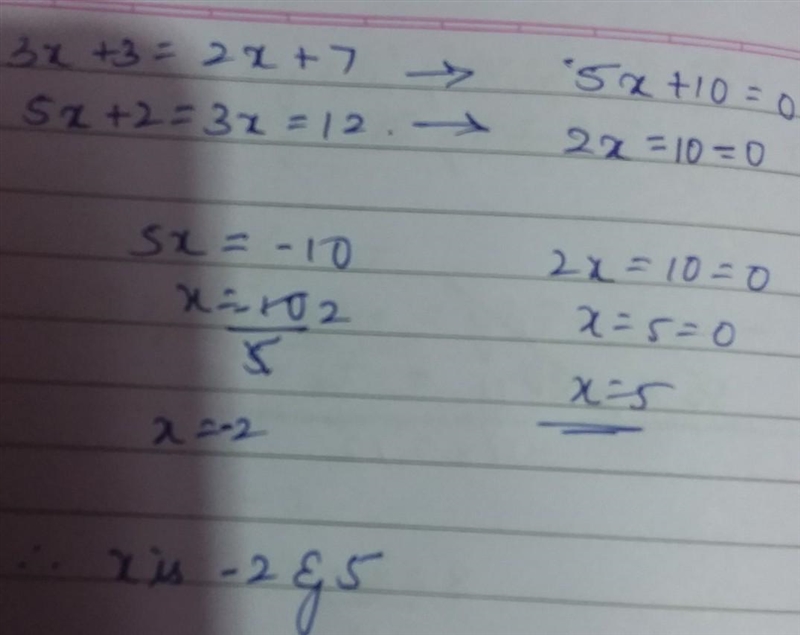 3x + 3 = 2x + 7 → 5x + 10 = 0
5x + 2 = 3x = 12. → 2x = 10 = 0
5x = -10
2x = 10 = 0
x = -10 2
x = 5 = 0
5
x = 5
x = -2
∴ x is -2 & 5